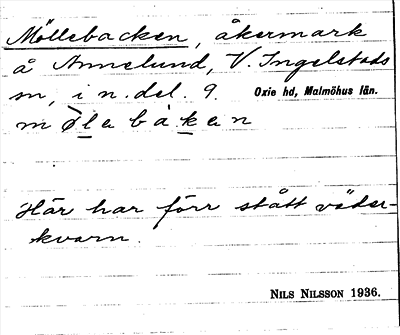 Möllebacken, åkermark
å Annelund, V. Ingelstads
sn, i n. del. 9. Oxie hd, Malmöhus län.
mø̀lebàken
Här har förr stått väder-
kvarn.
NILS NILSSON 1936.